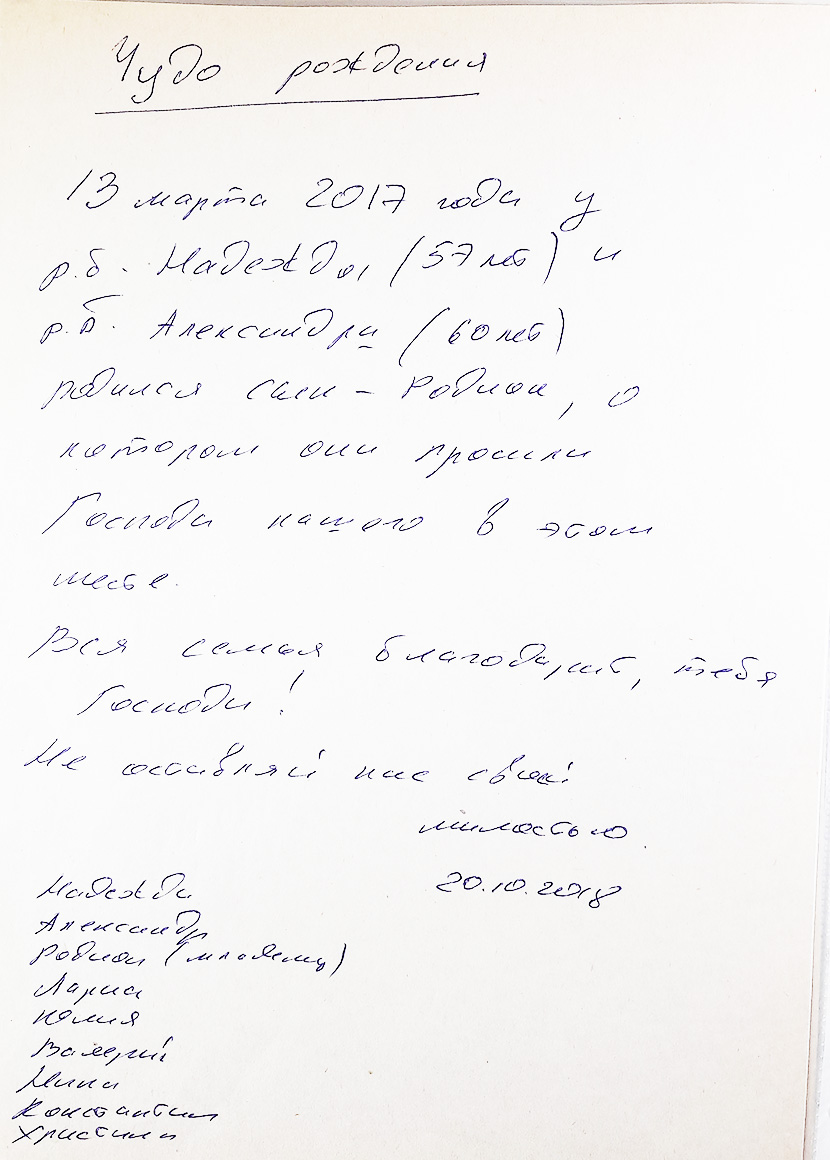 Чудо рождения
13 марта 2017 года у
р.б. Надежды (57 лет) и
р.б. Александра (60 лет)
родился сын - Родион, о
котором они просили
Господа нашего в этом
месте.
Вся семья благодарит, тебя
Господи!
Не оставляй нас своей
милостью
20.10.2018
Надежда
Александр
Родион (младенец)
Лариса
Юлия
Валерий
Нина
Константин
Христина